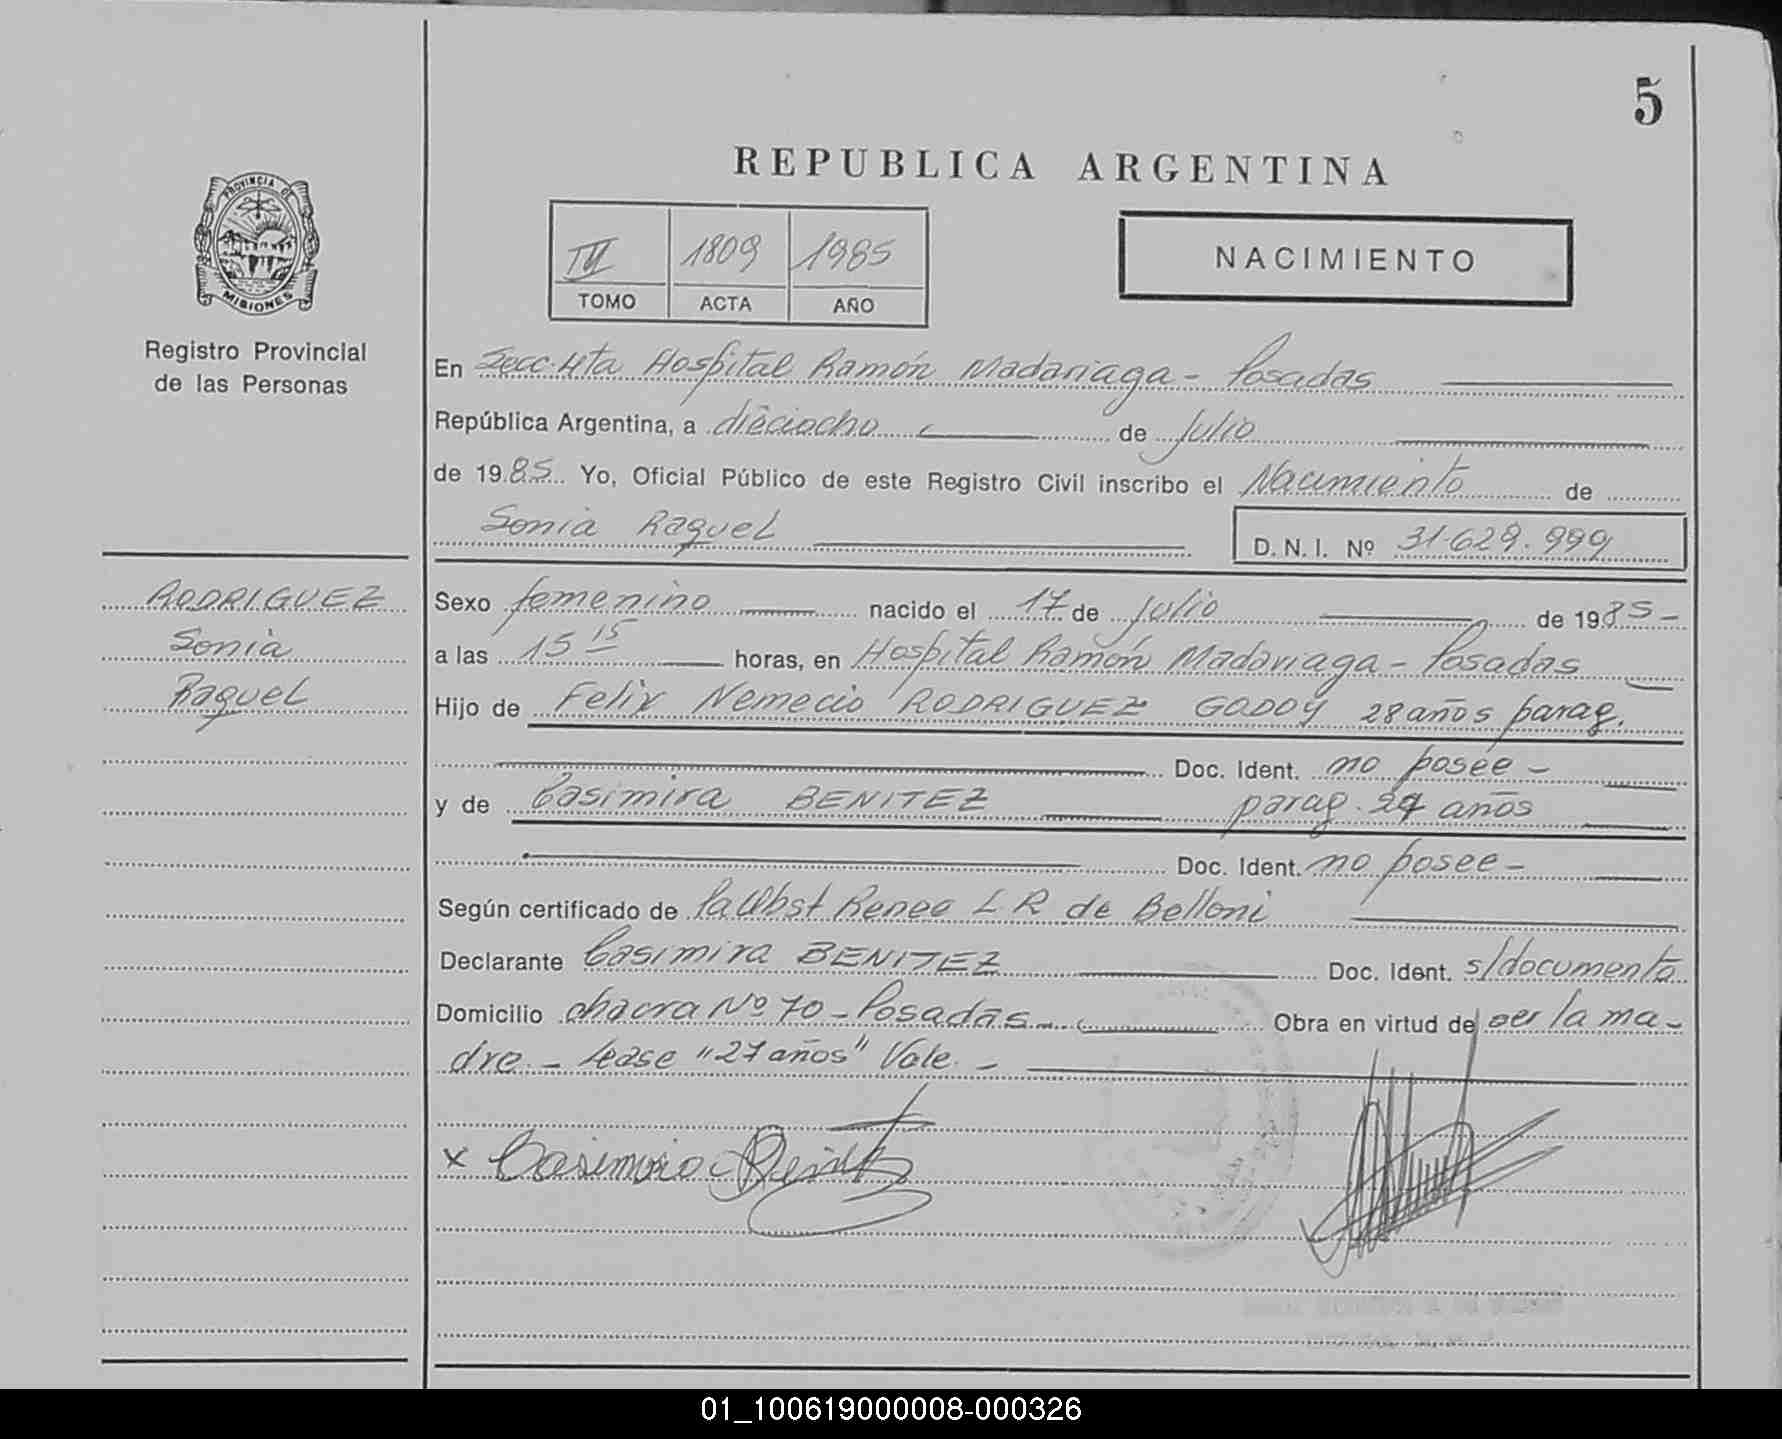 5
REPUBLICA ARGENTINA
PROVINCIA DE
MISIONES
Registro Provincial
de las Personas
1809 1985
TOMO ACTA AÑO
NACIMIENTO
En Secc. 4ta Hospital Ramón Madariaga - Posadas
República Argentina, a dieciocho de julio
de 1985 Yo, Oficial Público de este Registro Civil inscribo el Nacimiento de
Sonia Raquel D.N.I. Nº 31.629.999
RODRIGUEZ
Sonia
Raquel
Sexo femenino nacido el 17 de julio de 1985 -
a las 15 15 horas, en Hospital Ramón Madariaga - Posadas
Hijo de Felix Nemecio RODRIGUEZ GODOY 28 años parag.
Doc. Ident. no posee -
y de Casimira BENITEZ parag. 27 años
Doc. Ident. no posee -
Según certificado de Renee L R de Belloni
Declarante Casimira BENITEZ Doc. Ident. s/documento
Domicilio chacra Nº 70 - Posadas Obra en virtud de ser la ma-
dre. - Lease "27 años" Vale. -
x Casimira Benitez
01_100619000008-000326